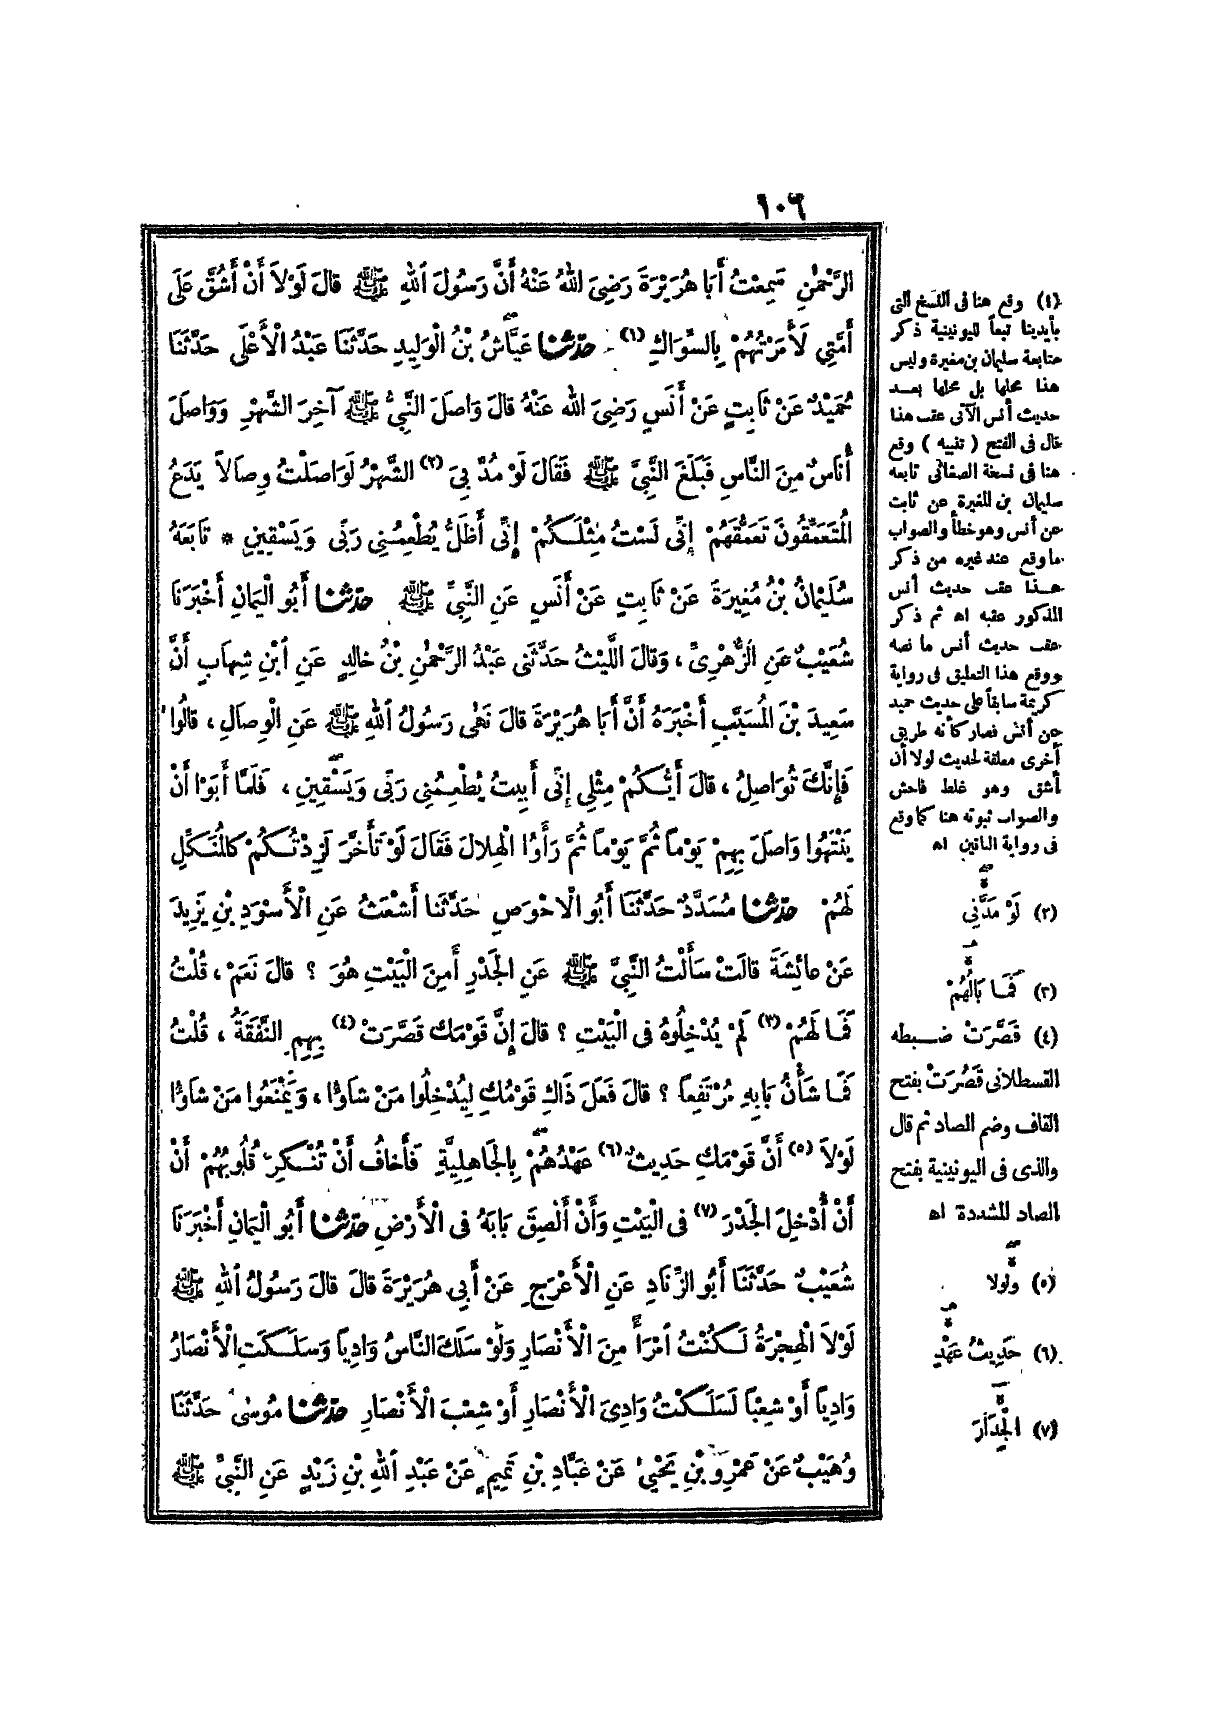 ١٠٦
الرَّحْمٰنِ سَمِعْتُ أَبَا هُرَيْرَةَ رَضِيَ اللهُ عَنْهُ أَنَّ رَسُولَ اللهِ ﷺ قَالَ لَوْلاَ أَنْ أَشُقَّ عَلَى
أُمَّتِي لَأَمَرْتُهُمْ بِالسِّوَاكِ (١) حَدَّثَنَا عَيَّاشُ بْنُ الْوَلِيدِ حَدَّثَنَا عَبْدُ الْأَعْلَى حَدَّثَنَا
حُمَيْدٌ عَنْ ثَابِتٍ عَنْ أَنَسٍ رَضِيَ اللهُ عَنْهُ قَالَ وَاصَلَ النَّبِيُّ ﷺ آخِرَ الشَّهْرِ وَوَاصَلَ
أُنَاسٌ مِنَ النَّاسِ فَبَلَغَ النَّبِيَّ ﷺ فَقَالَ لَوْ مُدَّ بِيَ (٢) الشَّهْرُ لَوَاصَلْتُ وِصَالاً يَدَعُ
الْمُتَعَمِّقُونَ تَعَمُّقَهُمْ إِنِّي لَسْتُ مِثْلَكُمْ إِنِّي أَظَلُّ يُطْعِمُنِي رَبِّي وَيَسْقِينِ * تَابَعَهُ
سُلَيْمَانُ بْنُ مُغِيرَةَ عَنْ ثَابِتٍ عَنْ أَنَسٍ عَنِ النَّبِيِّ ﷺ حَدَّثَنَا أَبُو الْيَمَانِ أَخْبَرَنَا
شُعَيْبٌ عَنِ الزُّهْرِيِّ ، وَقَالَ اللَّيْثُ حَدَّثَنِي عَبْدُ الرَّحْمٰنِ بْنُ خَالِدٍ عَنِ ابْنِ شِهَابٍ أَنَّ
سَعِيدَ بْنَ الْمُسَيَّبِ أَخْبَرَهُ أَنَّ أَبَا هُرَيْرَةَ قَالَ نَهَى رَسُولُ اللهِ ﷺ عَنِ الْوِصَالِ ، قَالُوا
فَإِنَّكَ تُوَاصِلُ ، قَالَ أَيُّكُمْ مِثْلِي إِنِّي أَبِيتُ يُطْعِمُنِي رَبِّي وَيَسْقِينِ ، فَلَمَّا أَبَوْا أَنْ
يَنْتَهُوا وَاصَلَ بِهِمْ يَوْماً ثُمَّ يَوْماً ثُمَّ رَأَوُا الْهِلَالَ فَقَالَ لَوْ تَأَخَّرَ لَزِدْتُكُمْ كَالْمُنَكِّلِ
لَهُمْ حَدَّثَنَا مُسَدَّدٌ حَدَّثَنَا أَبُو الْأَحْوَصِ حَدَّثَنَا أَشْعَثُ عَنِ الْأَسْوَدِ بْنِ يَزِيدَ
عَنْ عَائِشَةَ قَالَتْ سَأَلْتُ النَّبِيَّ ﷺ عَنِ الْجَدْرِ أَمِنَ الْبَيْتِ هُوَ ؟ قَالَ نَعَمْ ، قُلْتُ
فَمَا لَهُمْ (٣) لَمْ يُدْخِلُوهُ فِي الْبَيْتِ ؟ قَالَ إِنَّ قَوْمَكِ قَصَّرَتْ (٤) بِهِمِ النَّفَقَةُ ، قُلْتُ
فَمَا شَأْنُ بَابِهِ مُرْتَفِعاً ؟ قَالَ فَعَلَ ذَاكِ قَوْمُكِ لِيُدْخِلُوا مَنْ شَاؤُا ، وَيَمْنَعُوا مَنْ شَاؤُا
لَوْلاَ (٥) أَنَّ قَوْمَكِ حَدِيثٌ (٦) عَهْدُهُمْ بِالْجَاهِلِيَّةِ فَأَخَافُ أَنْ تُنْكِرَ قُلُوبُهُمْ أَنْ
أَنْ أُدْخِلَ الْجَدْرَ (٧) فِي الْبَيْتِ وَأَنْ أُلْصِقَ بَابَهُ فِي الْأَرْضِ حَدَّثَنَا أَبُو الْيَمَانِ أَخْبَرَنَا
شُعَيْبٌ حَدَّثَنَا أَبُو الزِّنَادِ عَنِ الْأَعْرَجِ عَنْ أَبِي هُرَيْرَةَ قَالَ قَالَ رَسُولُ اللهِ ﷺ
لَوْلاَ الْهِجْرَةُ لَكُنْتُ امْرَأً مِنَ الْأَنْصَارِ وَلَوْ سَلَكَ النَّاسُ وَادِياً وَسَلَكَتِ الْأَنْصَارُ
وَادِياً أَوْ شِعْبًا لَسَلَكْتُ وَادِيَ الْأَنْصَارِ أَوْ شِعْبَ الْأَنْصَارِ حَدَّثَنَا مُوسَى حَدَّثَنَا
وُهَيْبٌ عَنْ عَمْرِو بْنِ يَحْيَى عَنْ عَبَّادِ بْنِ تَمِيمٍ عَنْ عَبْدِ اللهِ بْنِ زَيْدٍ عَنِ النَّبِيِّ ﷺ
(١) وقع هنا في النسخ التي
بأيدينا تبعاً لليونينية ذكر
متابعة سليمان بن مغيرة وليس
هنا محلها بل محلها بعد
حديث أنس الآتي عقب هذا
قال في الفتح ( تنبيه ) وقع
هنا في نسخة الصغاني تابعه
سليمان بن المغيرة عن ثابت
عن أنس وهو خطأ والصواب
ما وقع عند غيره من ذكر
هذا عقب حديث أنس
المذكور عقبه اه ثم ذكر
عقب حديث أنس ما نصه
ووقع هذا التعليق في رواية
كريمة سابقاً على حديث حميد
عن أنس فصار كأنه طريق
أخرى معلقة لحديث لولا أن
أشق وهو غلط فاحش
والصواب ثبوته هنا كما وقع
في رواية الباقين اه
(٢) لَوْ مَدَّنِي
(٣) فَمَا بَالُهُمْ
(٤) قَصَّرَتْ ضبطه
القسطلاني قَصُرَتْ بفتح
القاف وضم الصاد ثم قال
والذي في اليونينية بفتح
الصاد المشددة اه
(٥) ولولا
(٦) حَدِيثُ عَهْدٍ
(٧) الْجِدَارَ